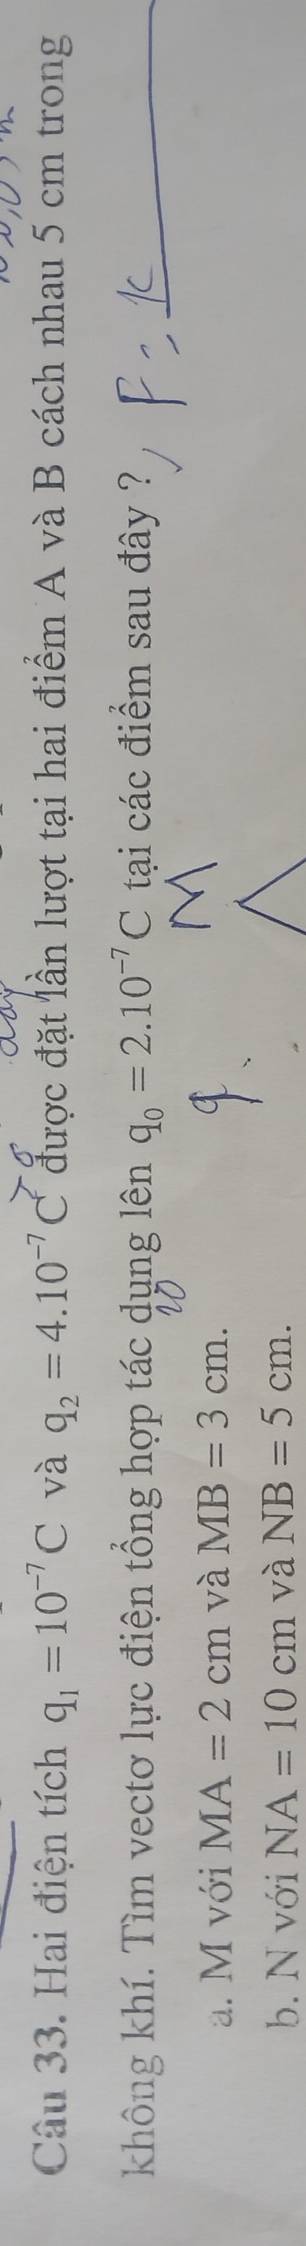 Câu 33. Hai điện tích q₁ = 10⁻⁷ C và q₂ = 4.10⁻⁷ C được đặt lần lượt tại hai điểm A và B cách nhau 5 cm trong
không khí. Tìm vectơ lực điện tổng hợp tác dụng lên q₀ = 2.10⁻⁷ C tại các điểm sau đây ? F = k
a. M với MA = 2 cm và MB = 3 cm.
q
M
b. N với NA = 10 cm và NB = 5 cm.